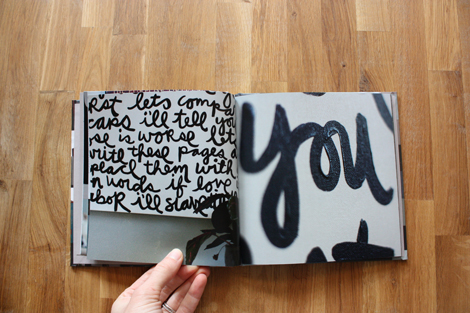 RST lets comp
caps ill tell you
se is worse let
write these pages
them with
n words if love
ill
you